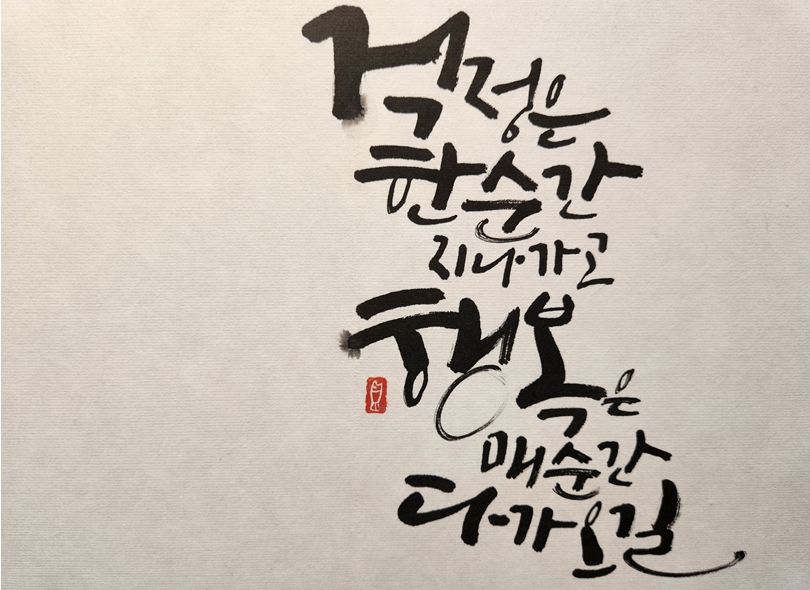 걱정은
한순간
지나가고
행복은
매순간
다가오길